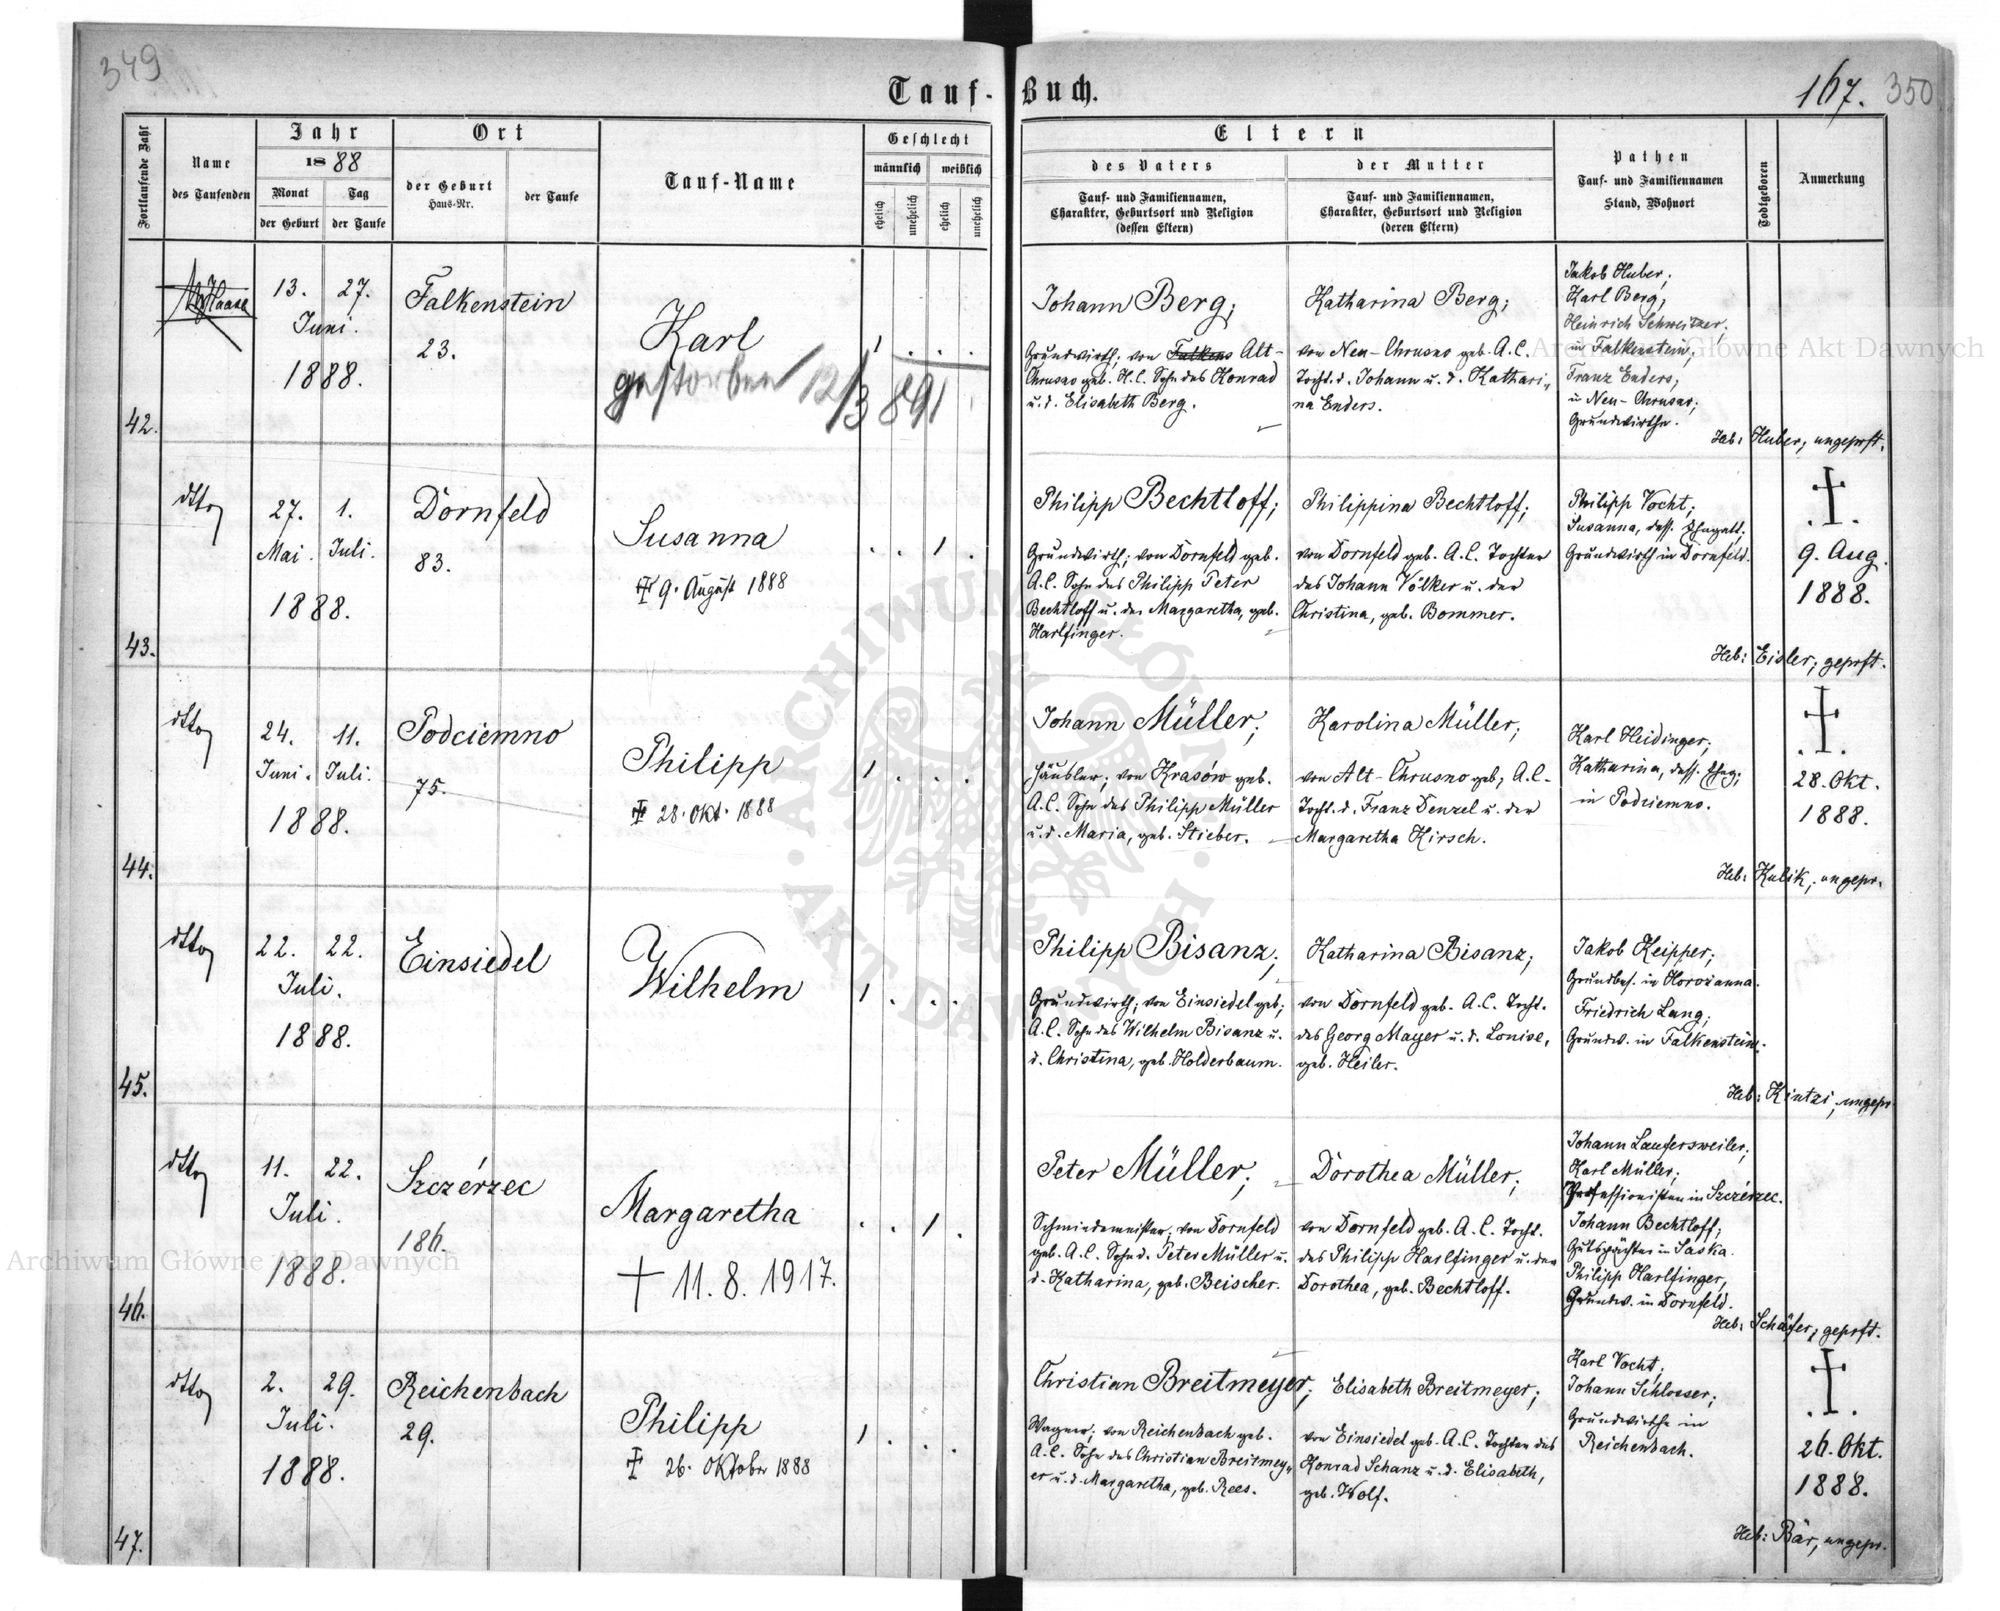 349
Tauf-Buch.
167. 350
Fortlaufende Zahl
Name
des Taufenden
Jahr
1888
Monat
der Geburt
Tag
der Taufe
Ort
der Geburt
Haus-Nr.
der Taufe
Tauf-Name
Geschlecht
männlich
weiblich
ehelich
unehelich
ehelich
unehelich
Eltern
des Vaters
Tauf- und Familiennamen,
Charakter, Geburtsort und Religion
(dessen Eltern)
der Mutter
Tauf- und Familiennamen,
Charakter, Geburtsort und Religion
(deren Eltern)
Pathen
Tauf- und Familiennamen
Stand, Wohnort
Todtgeboren
Anmerkung
42.
Haase
13. 27.
Juni.
1888.
Falkenstein
23.
Karl
gestorben 12/3 891
1 . . .
Johann Berg;
Grundwirth; von Falkens Alt-
Chrusno geb. H.C. Sohn des Konrad
u. d. Elisabeth Berg.
Katharina Berg;
von Neu-Chrusno geb. A.C.
Tocht. d. Johann u. d. Kathari„
na Enders.
Jakob Huber;
Karl Berg;
Heinrich Schweitzer;
in Falkenstein;
Franz Enders;
in Neu-Chrusno;
Grundwirthe.
Heb: Huber, ungeprft.
43.
dtto
27. 1.
Mai. Juli.
1888.
Dornfeld
83.
Susanna
9. August 1888
. . 1 .
Philipp Bechtloff;
Grundwirth; von Dornfeld geb.
A.C. Sohn des Philipp Peter
Bechtloff u. der Margaretha, geb.
Harlfinger.
Philippina Bechtloff;
von Dornfeld geb. A.C. Tochter
des Johann Völker u. der
Christina, geb. Bommer.
Philipp Vocht;
Susanna, dess. Ehegatt;
Grundwirth in Dornfeld.
9. Aug.
1888.
Heb: Eisler, geprft.
44.
dtto
24. 11.
Juni. Juli.
1888.
Podciemno
75.
Philipp
28. Okt. 1888
1 . . .
Johann Müller;
Häusler; von Krasów geb.
A.C. Sohn des Philipp Müller
u. d. Maria, geb. Stieber.
Karolina Müller;
von Alt-Chrusno geb; A.C.
Tocht. d. Franz Denzel u. der
Margaretha Hirsch.
Karl Heidinger;
Katharina, dess. Eheg;
in Podciemno.
28. Okt.
1888.
Heb: Kulik, ungepr.
45.
dtto
22. 22.
Juli.
1888.
Einsiedel
Wilhelm
1 . . .
Philipp Bisanz;
Grundwirth; von Einsiedel geb;
A.C. Sohn des Wilhelm Bisanz u.
d. Christina, geb. Holderbaum.
Katharina Bisanz;
von Dornfeld geb. A.C. Tocht.
des Georg Mayer u. d. Louise,
geb. Heiler.
Jakob Keipper;
Grundbes. in Horožanna.
Friedrich Lang;
Grundw. in Falkenstein.
Heb: Kintzi, ungepr.
46.
dtto
11. 22.
Juli.
1888.
Szczérzec
186.
Margaretha
† 11. 8. 1917.
. . 1 .
Peter Müller;
Schmiedemeister; von Dornfeld
geb. A.C. Sohn d. Peter Müller u.
d. Katharina, geb. Beischer.
Dorothea Müller;
von Dornfeld geb. A.C. Tocht.
des Philipp Harlfinger u. der
Dorothea, geb. Bechtloff.
Johann Laufersweiler;
Karl Müller;
Professionisten in Szczérzec.
Johann Bechtloff;
Gutspächter in Saska.
Philipp Harlfinger,
Grundw. in Dornfeld.
Heb: Schäfer, geprft.
47.
dtto
2. 29.
Juli.
1888.
Reichenbach
29.
Philipp
26. Oktober 1888
1 . . .
Christian Breitmeyer;
Wagner; von Reichenbach geb.
A.C. Sohn des Christian Breitmey„
er u. d. Margaretha, geb. Rees.
Elisabeth Breitmeyer;
von Einsiedel geb. A.C. Tochter des
Konrad Schanz u. d. Elisabeth,
geb. Wolf.
Karl Vocht;
Johann Schlosser;
Grundwirthe in
Reichenbach.
26. Okt.
1888.
Heb: Bär, ungepr.
Archiwum Główne Akt Dawnych
Archiwum Główne Akt Dawnych
ARCHIWUM GŁÓWNE AKT DAWNYCH